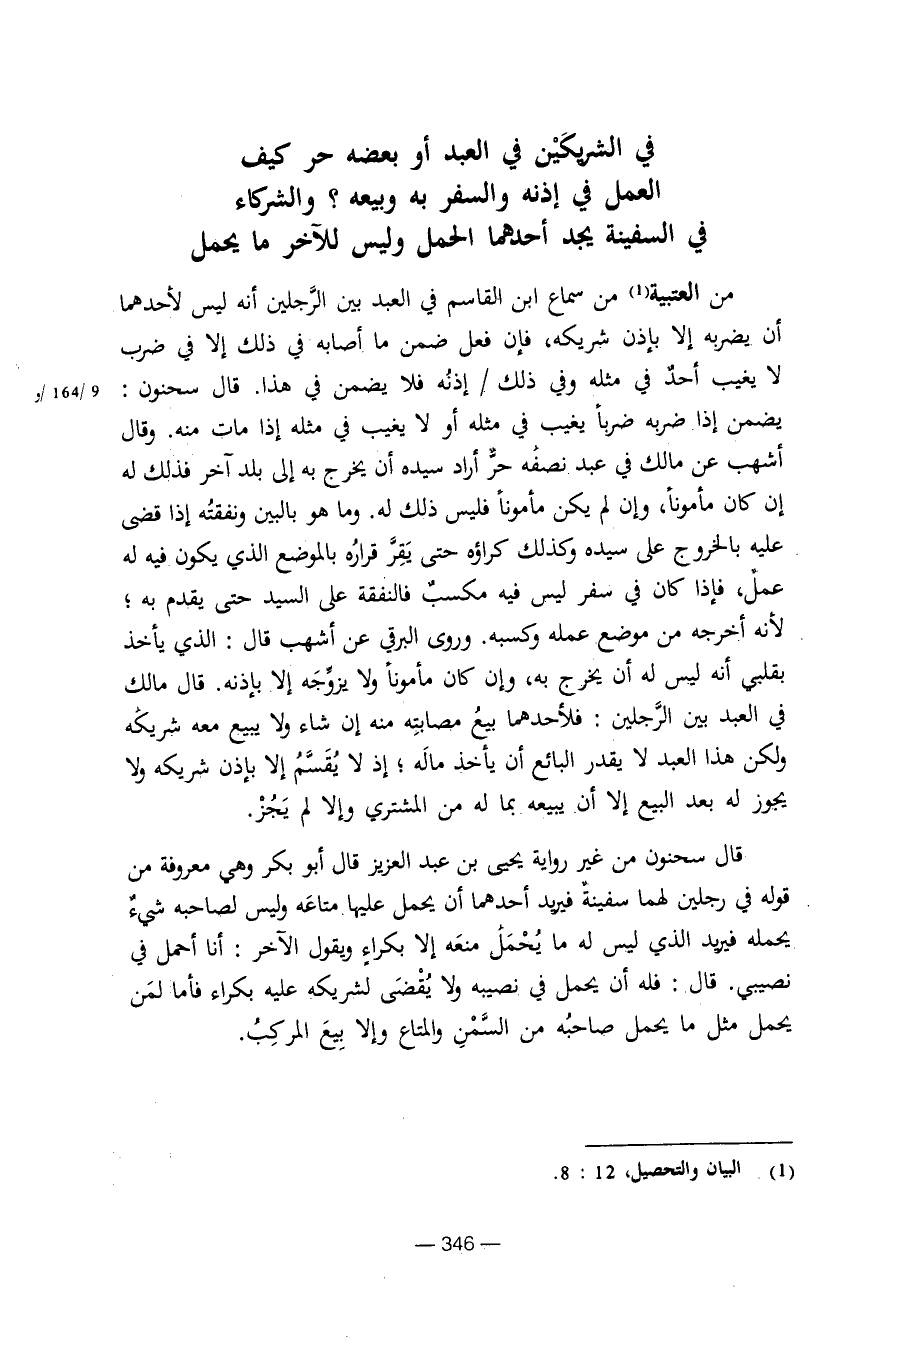 في الشريكَيْن في العبد أو بعضه حر كيف
العمل في إذنه والسفر به وبيعه ؟ والشركاء
في السفينة يجد أحدهما الحمل وليس للآخر ما يحمل
من العتبية(1) من سماع ابن القاسم في العبد بين الرَّجلين أنه ليس لأحدهما
أن يضربه إلا بإذن شريكه، فإن فعل ضمن ما أصابه في ذلك إلا في ضرب
لا يغيب أحدٌ في مثله وفي ذلك / إذنُه فلا يضمن في هذا. قال سحنون : 9 /164/و
يضمن إذا ضربه ضرباً يغيب في مثله أو لا يغيب في مثله إذا مات منه. وقال
أشهب عن مالك في عبد نصفُه حرٌّ أراد سيده أن يخرج به إلى بلد آخر فذلك له
إن كان مأموناً، وإن لم يكن مأموناً فليس ذلك له. وما هو بالبين ونفقتُه إذا قضى
عليه بالخروج على سيده وكذلك كراؤه حتى يَقِرَّ قرارُه بالموضع الذي يكون فيه له
عملٌ، فإذا كان في سفر ليس فيه مكسبٌ فالنفقة على السيد حتى يقدم به ؛
لأنه أخرجه من موضع عمله وكسبه. وروى البرقي عن أشهب قال : الذي يأخذ
بقلبي أنه ليس له أن يخرج به، وإن كان مأموناً ولا يزوِّجَه إلا بإذنه. قال مالك
في العبد بين الرَّجلين : فلأحدهما بيعُ مصابتِه منه إن شاء ولا يبيع معه شريكُه
ولكن هذا العبد لا يقدر البائع أن يأخذ مالَه ؛ إذ لا يُقَسَّمُ إلا بإذن شريكه ولا
يجوز له بعد البيع إلا أن يبيعه بما له من المشتري وإلا لم يَجُزْ.
قال سحنون من غير رواية يحيى بن عبد العزيز قال أبو بكر وهي معروفة من
قوله في رجلين لهما سفينةٌ فيريد أحدهما أن يحمل عليها متاعَه وليس لصاحبه شيءٌ
يحمله فيريد الذي ليس له ما يُحْمَلُ منعَه إلا بكراءٍ ويقول الآخر : أنا أحمل في
نصيبي. قال : فله أن يحمل في نصيبه ولا يُقْضَى لشريكه عليه بكراء فأما لمَن
يحمل مثل ما يحمل صاحبُه من السَّمْنِ والمتاع وإلا بِيعَ المركِبُ.
(1) البيان والتحصيل، 12 : 8.
— 346 —